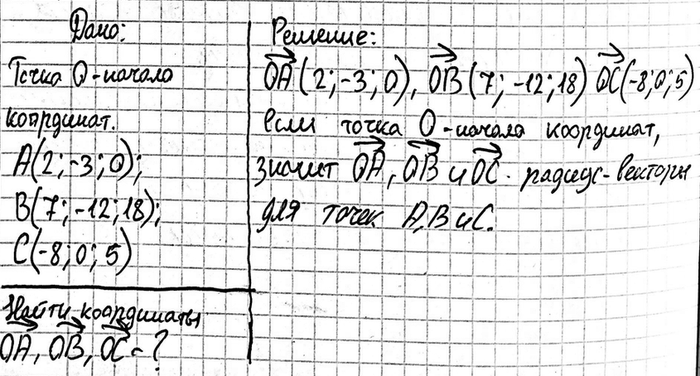 Дано:
Точка O-начало
координат.
A(2;-3;0);
B(7;-12;18);
C(-8;0;5)
Найти координаты
OA, OB, OC - ?
Решение:
OA(2;-3;0), OB(7;-12;18) OC(-8;0;5)
если точка O-начало координат,
значит OA, OB и OC - радиус-векторы
для точек A,B и C.